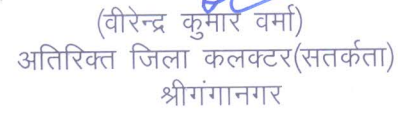 (वीरेन्द्र कुमार वर्मा)
अतिरिक्त जिला कलक्टर(सतर्कता)
श्रीगंगानगर